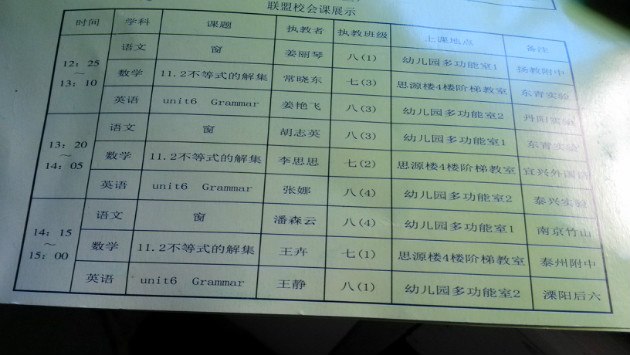 联盟校会课展示
时间 学科 课题 执教者 执教班级 上课地点 备注
12：25～13：10 语文 窗 姜丽琴 八(1) 幼儿园多功能室1 扬教附中
数学 11.2不等式的解集 常晓东 七(3) 思源楼4楼阶梯教室 东青实验
英语 unit6 Grammar 姜艳飞 八(3) 幼儿园多功能室2 丹阳实验
13：20～14：05 语文 窗 胡志英 八(3) 幼儿园多功能室1 东青实验
数学 11.2不等式的解集 李思思 七(2) 思源楼4楼阶梯教室 宜兴外国语
英语 unit6 Grammar 张娜 八(4) 幼儿园多功能室2 泰兴实验
14：15～15：00 语文 窗 潘森云 八(4) 幼儿园多功能室1 南京竹山
数学 11.2不等式的解集 王卉 七(1) 思源楼4楼阶梯教室 泰州附中
英语 unit6 Grammar 王静 八(1) 幼儿园多功能室2 溧阳后六